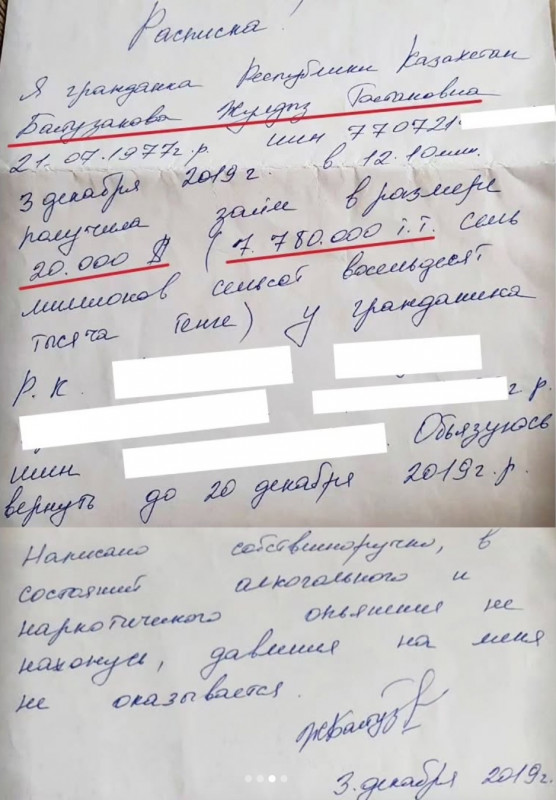 Расписка!
Я гражданка Республики Казахстан
Батузакова Жулдыз Тастановна
21.07.1977г.р. иин 770721
3 декабря 2019г. в 12.10мин.
получила займ в размере
20.000 $ (7.780.000 т.т. семь
миллионов семьсот восемьдесят
тысяча тенге) у гражданина
Р.К.
г р.
иин Обязуюсь
вернуть до 20 декабря 2019г.р.
Написано собственноручно, в
состояний алкогольного и
наркотического опьянения не
нахожусь, давления на меня
не оказывается.
3.декабря 2019г.